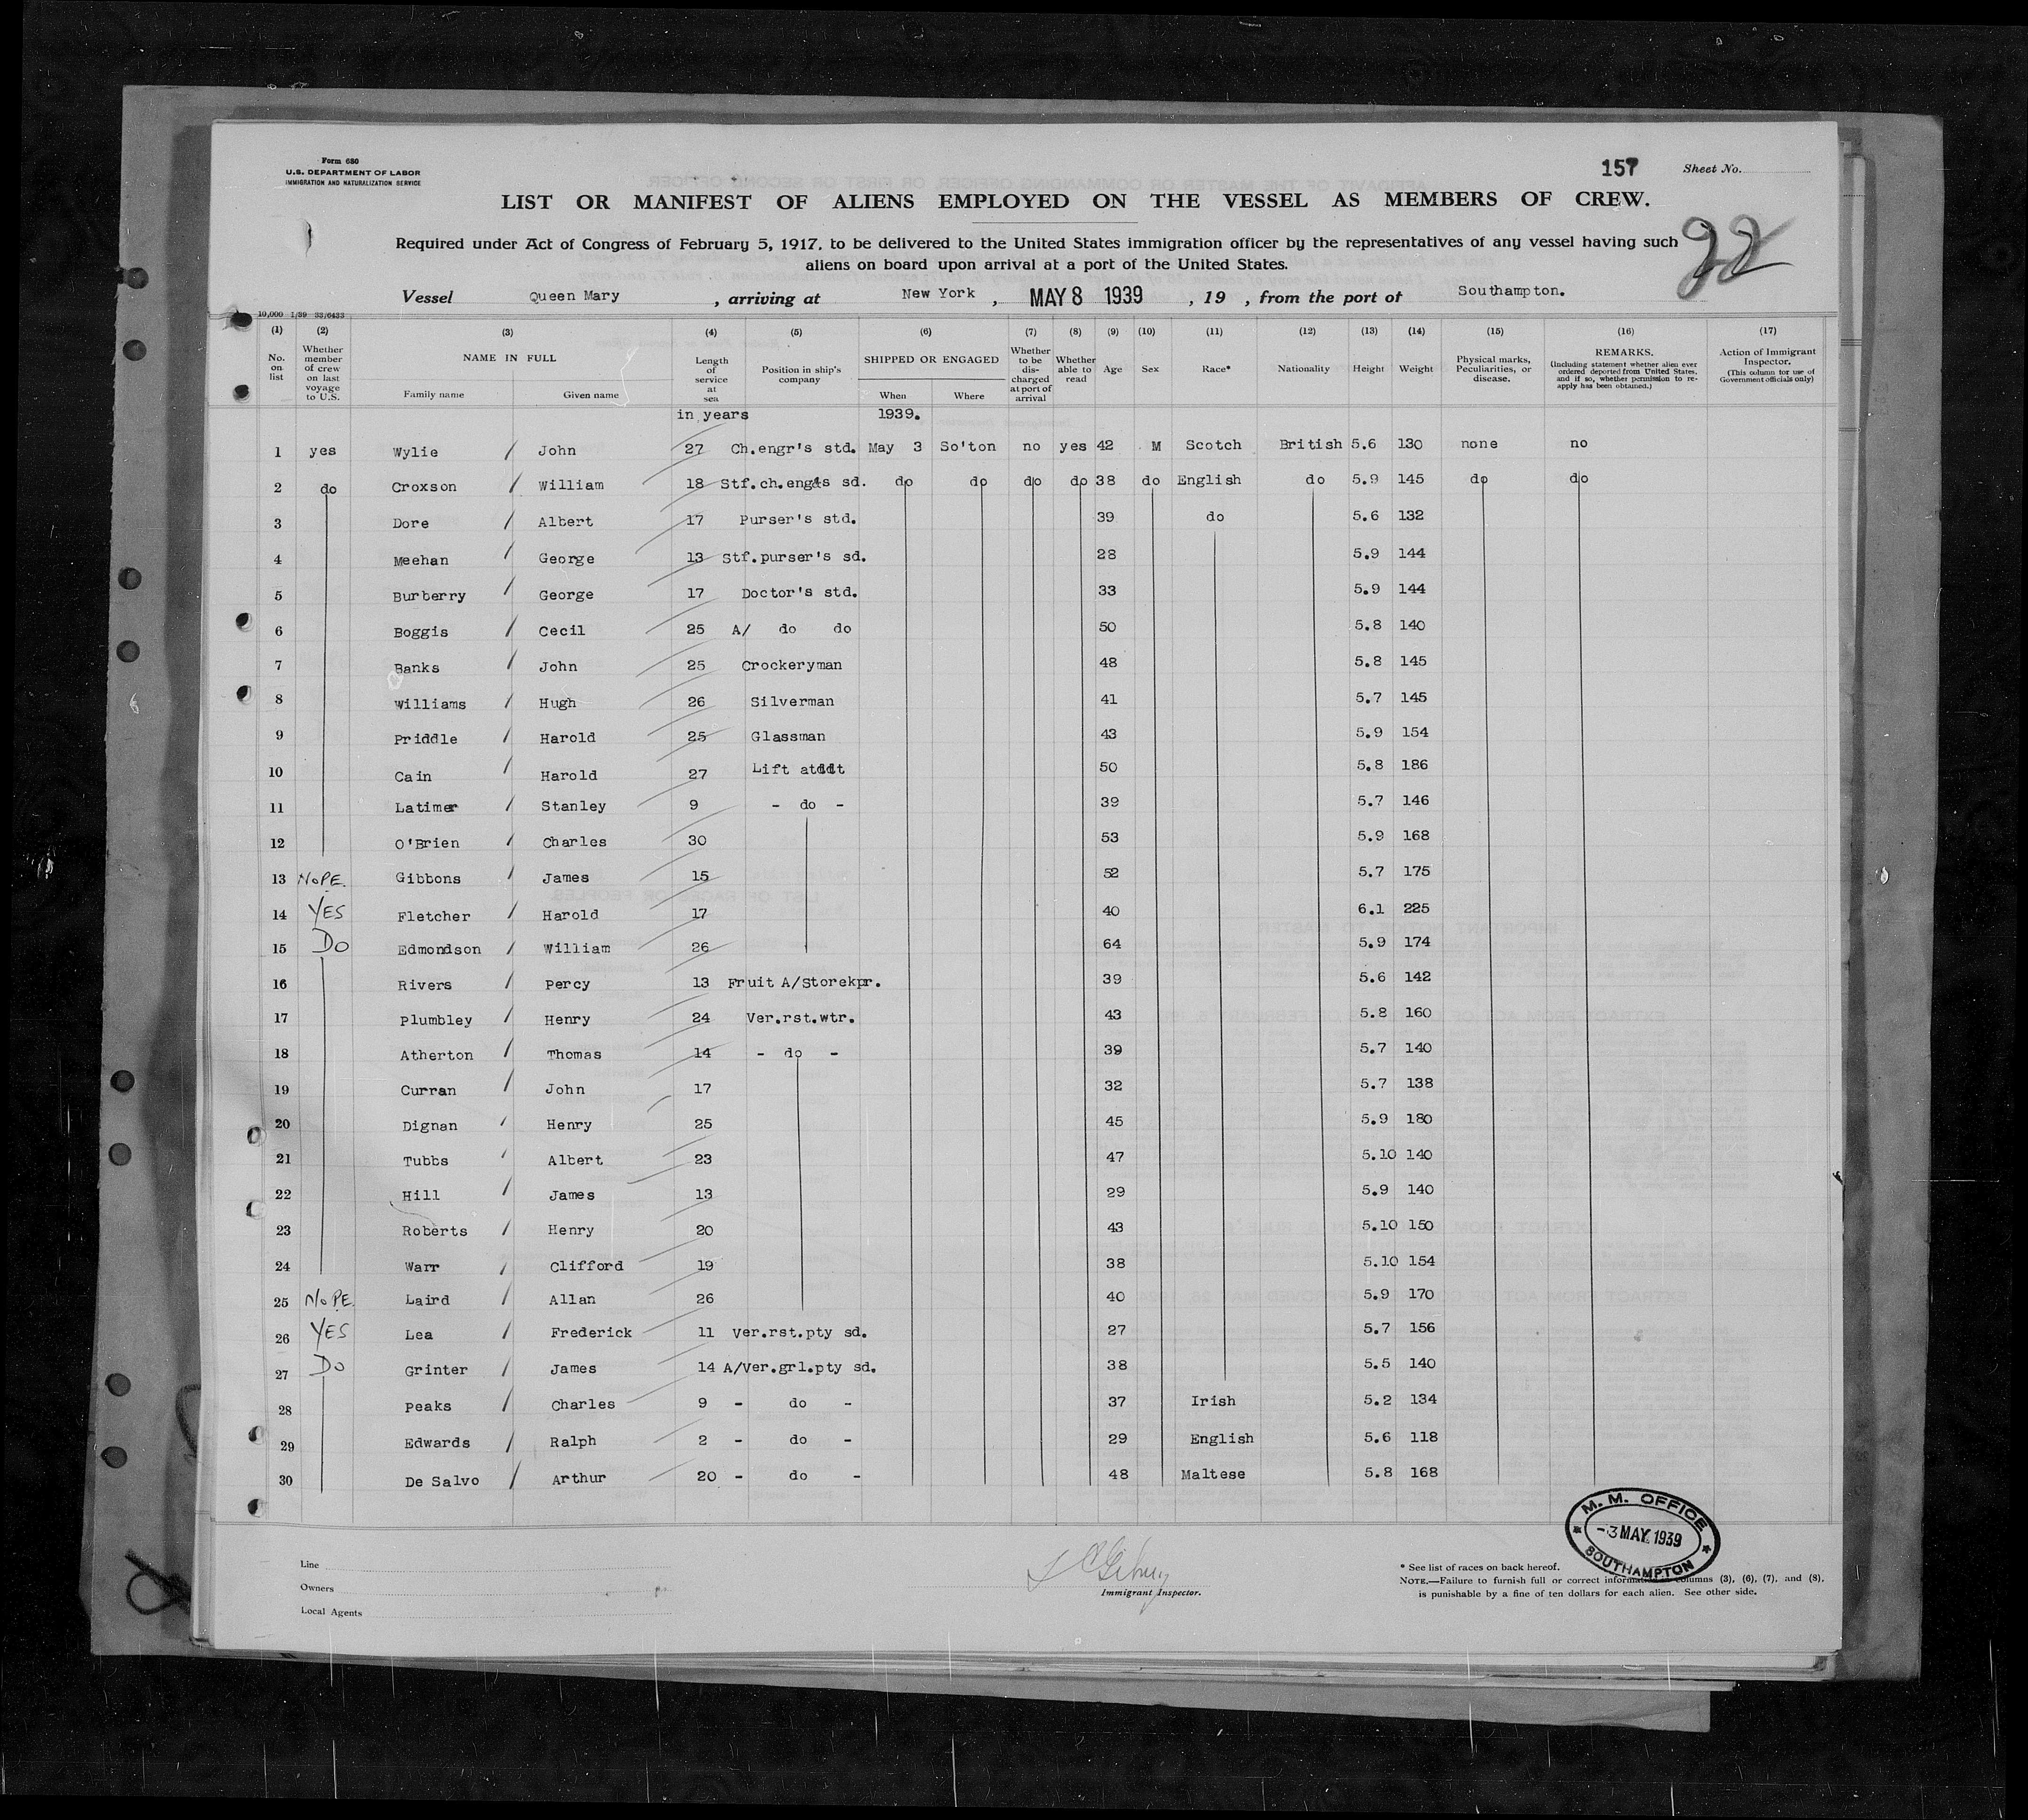 Form 680
U.S. DEPARTMENT OF LABOR
IMMIGRATION AND NATURALIZATION SERVICE
157 Sheet No.
LIST OR MANIFEST OF ALIENS EMPLOYED ON THE VESSEL AS MEMBERS OF CREW.
22
Required under Act of Congress of February 5, 1917, to be delivered to the United States immigration officer by the representatives of any vessel having such
aliens on board upon arrival at a port of the United States.
Vessel Queen Mary , arriving at New York , MAY 8 1939 , 19 , from the port of Southampton.
10,000 1/39 33/6433
(1) (2) (3) (4) (5) (6) (7) (8) (9) (10) (11) (12) (13) (14) (15) (16) (17)
No. on list
Whether member of crew on last voyage to U.S.
NAME IN FULL
Family name Given name
Length of service at sea
Position in ship's company
SHIPPED OR ENGAGED
When Where
Whether to be discharged at port of arrival
Whether able to read
Age
Sex
Race*
Nationality
Height
Weight
Physical marks, Peculiarities, or disease.
REMARKS.
(Including statement whether alien ever ordered deported from United States, and if so, whether permission to re-apply has been obtained.)
Action of Immigrant Inspector.
(This column for use of Government officials only)
in years 1939.
1 yes Wylie John 27 Ch.engr's std. May 3 So'ton no yes 42 M Scotch British 5.6 130 none no
2 do Croxson William 18 Stf.ch.engs sd. do do do do 38 do English do 5.9 145 do do
3 Dore Albert 17 Purser's std. 39 do 5.6 132
4 Meehan George 13 Stf.purser's sd. 28 5.9 144
5 Burberry George 17 Doctor's std. 33 5.9 144
6 Boggis Cecil 25 A/ do do 50 5.8 140
7 Banks John 25 Crockeryman 48 5.8 145
8 Williams Hugh 26 Silverman 41 5.7 145
9 Priddle Harold 25 Glassman 43 5.9 154
10 Cain Harold 27 Lift atddt 50 5.8 186
11 Latimer Stanley 9 - do - 39 5.7 146
12 O'Brien Charles 30 53 5.9 168
13 NOPE. Gibbons James 15 52 5.7 175
14 YES Fletcher Harold 17 40 6.1 225
15 DO Edmondson William 26 64 5.9 174
16 Rivers Percy 13 Fruit A/Storekpr. 39 5.6 142
17 Plumbley Henry 24 Ver.rst.wtr. 43 5.8 160
18 Atherton Thomas 14 - do - 39 5.7 140
19 Curran John 17 32 5.7 138
20 Dignan Henry 25 45 5.9 180
21 Tubbs Albert 23 47 5.10 140
22 Hill James 13 29 5.9 140
23 Roberts Henry 20 43 5.10 150
24 Warr Clifford 19 38 5.10 154
25 NOPE. Laird Allan 26 40 5.9 170
26 YES Lea Frederick 11 Ver.rst.pty sd. 27 5.7 156
27 DO Grinter James 14 A/Ver.grl.pty sd. 38 5.5 140
28 Peaks Charles 9 - do - 37 Irish 5.2 134
29 Edwards Ralph 2 - do - 29 English 5.6 118
30 De Salvo Arthur 20 - do - 48 Maltese 5.8 168
M. M. OFFICE
-3 MAY 1939
SOUTHAMPTON
Line
Owners
Local Agents
Immigrant Inspector.
* See list of races on back hereof.
NOTE.—Failure to furnish full or correct information columns (3), (6), (7), and (8),
is punishable by a fine of ten dollars for each alien. See other side.